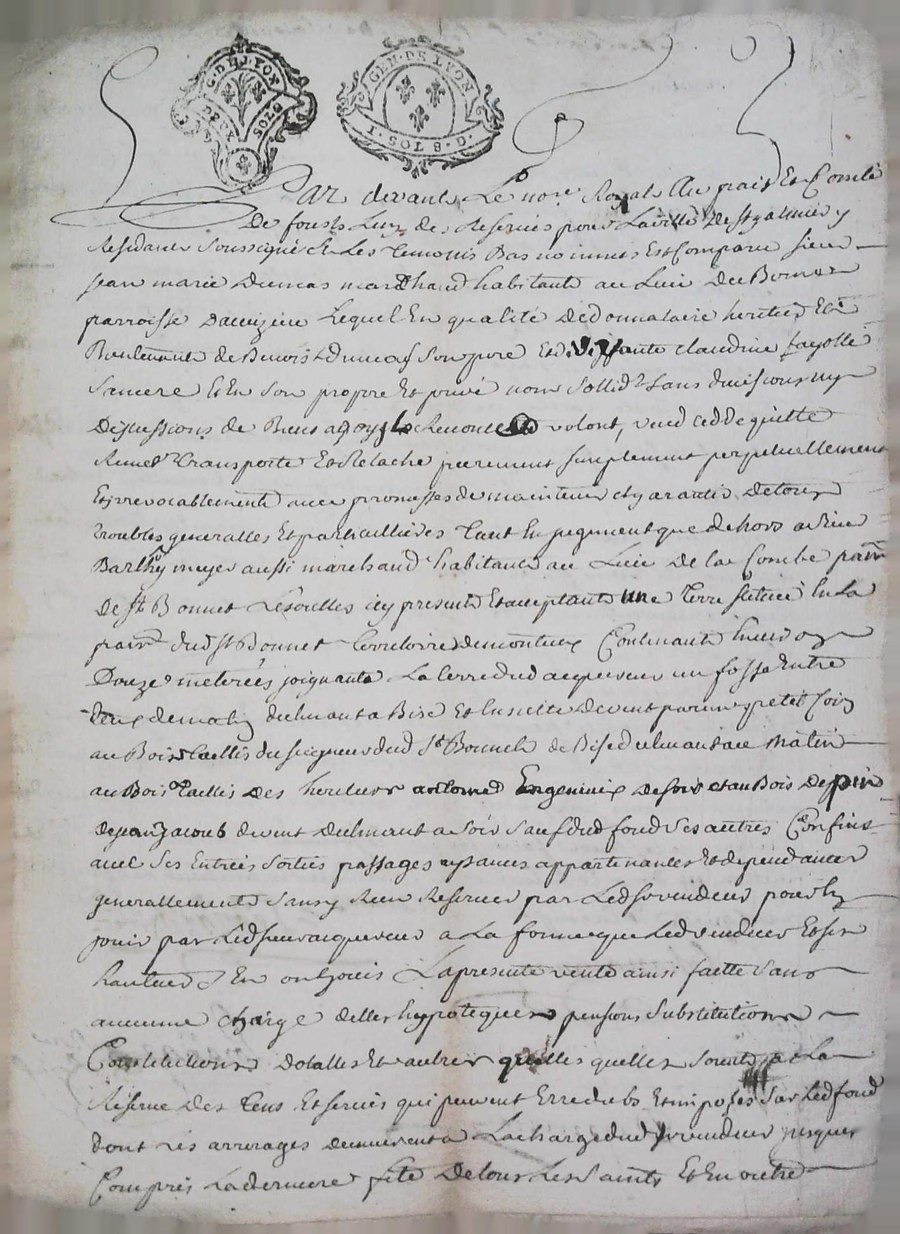 G. DE LYON
DEUX SOLS
GEN. DE LYON
1. SOL 8. D.
Par devant Le nore Royal Au pais Et Comté
De foust Lun des Reservés pour La ville De St galmier y
Residant soussigné Et Les Temoins Bas nommes Est Comparu sieur
jean marie Dumas marchand habitant au Lieu Du
parroisse daveizieu Lequel En qualité de donnataire heritier Et
de Benoist dumas son pere Et de deffunte claudine fayolle
sa mere Et En son propre Et privé nom sollidt sans division ny
discussions de Biens a quoy il Renonce volont, vend cedde quitte
Remet Transporte Et Relache purement simplement perpetuellement
Et irrevocablement avec promesses de maintenir et garantir de tous
troubles generalles Et particullieres Tant En jugement que dehors a sieur
Barthy meyer aussi marchand habitant au Lieu De la Combe parr
De St Bonnet Les oulles icy present Et acceptant une Terre situee En La
parr dud St Bonnet Territoire de Contenant Environ
Douze meterées joignant La terre dud acquereur un fossé Entre
deux de matin dulmant a Bise Et Ensuite devent par un petit Coin
au Bois Taillis du seigneur dud St Bonnet de Bise dulmant au matin
au Bois Taillis des heritiers antoine de soir et au Bois de pin
de jean jacoub devent dulmant a soir sauf dud fond ses autres Confins
avec ses Entrées sorties passages aysances appartenances Et dependances
generallement sans y Rien Reserver par Led sr vendeur pour En
jouir par Led sieur acquereur a La forme que Led vendeur Et ses
hauteurs En ont jouis La presente vente ainsi faitte sans
aucune charge debtes hypoteques pensions substitutions
Constitutions dotalles Et autres quelles quelles soient a La
Reserve des Cens Et servis qui peuvent Etre dubs Et imposés sur Led fond
dont Les arrerages demeurent a La charge dud sr vendeur jusques
Compris La derniere fete De tous Les saints Et En outre